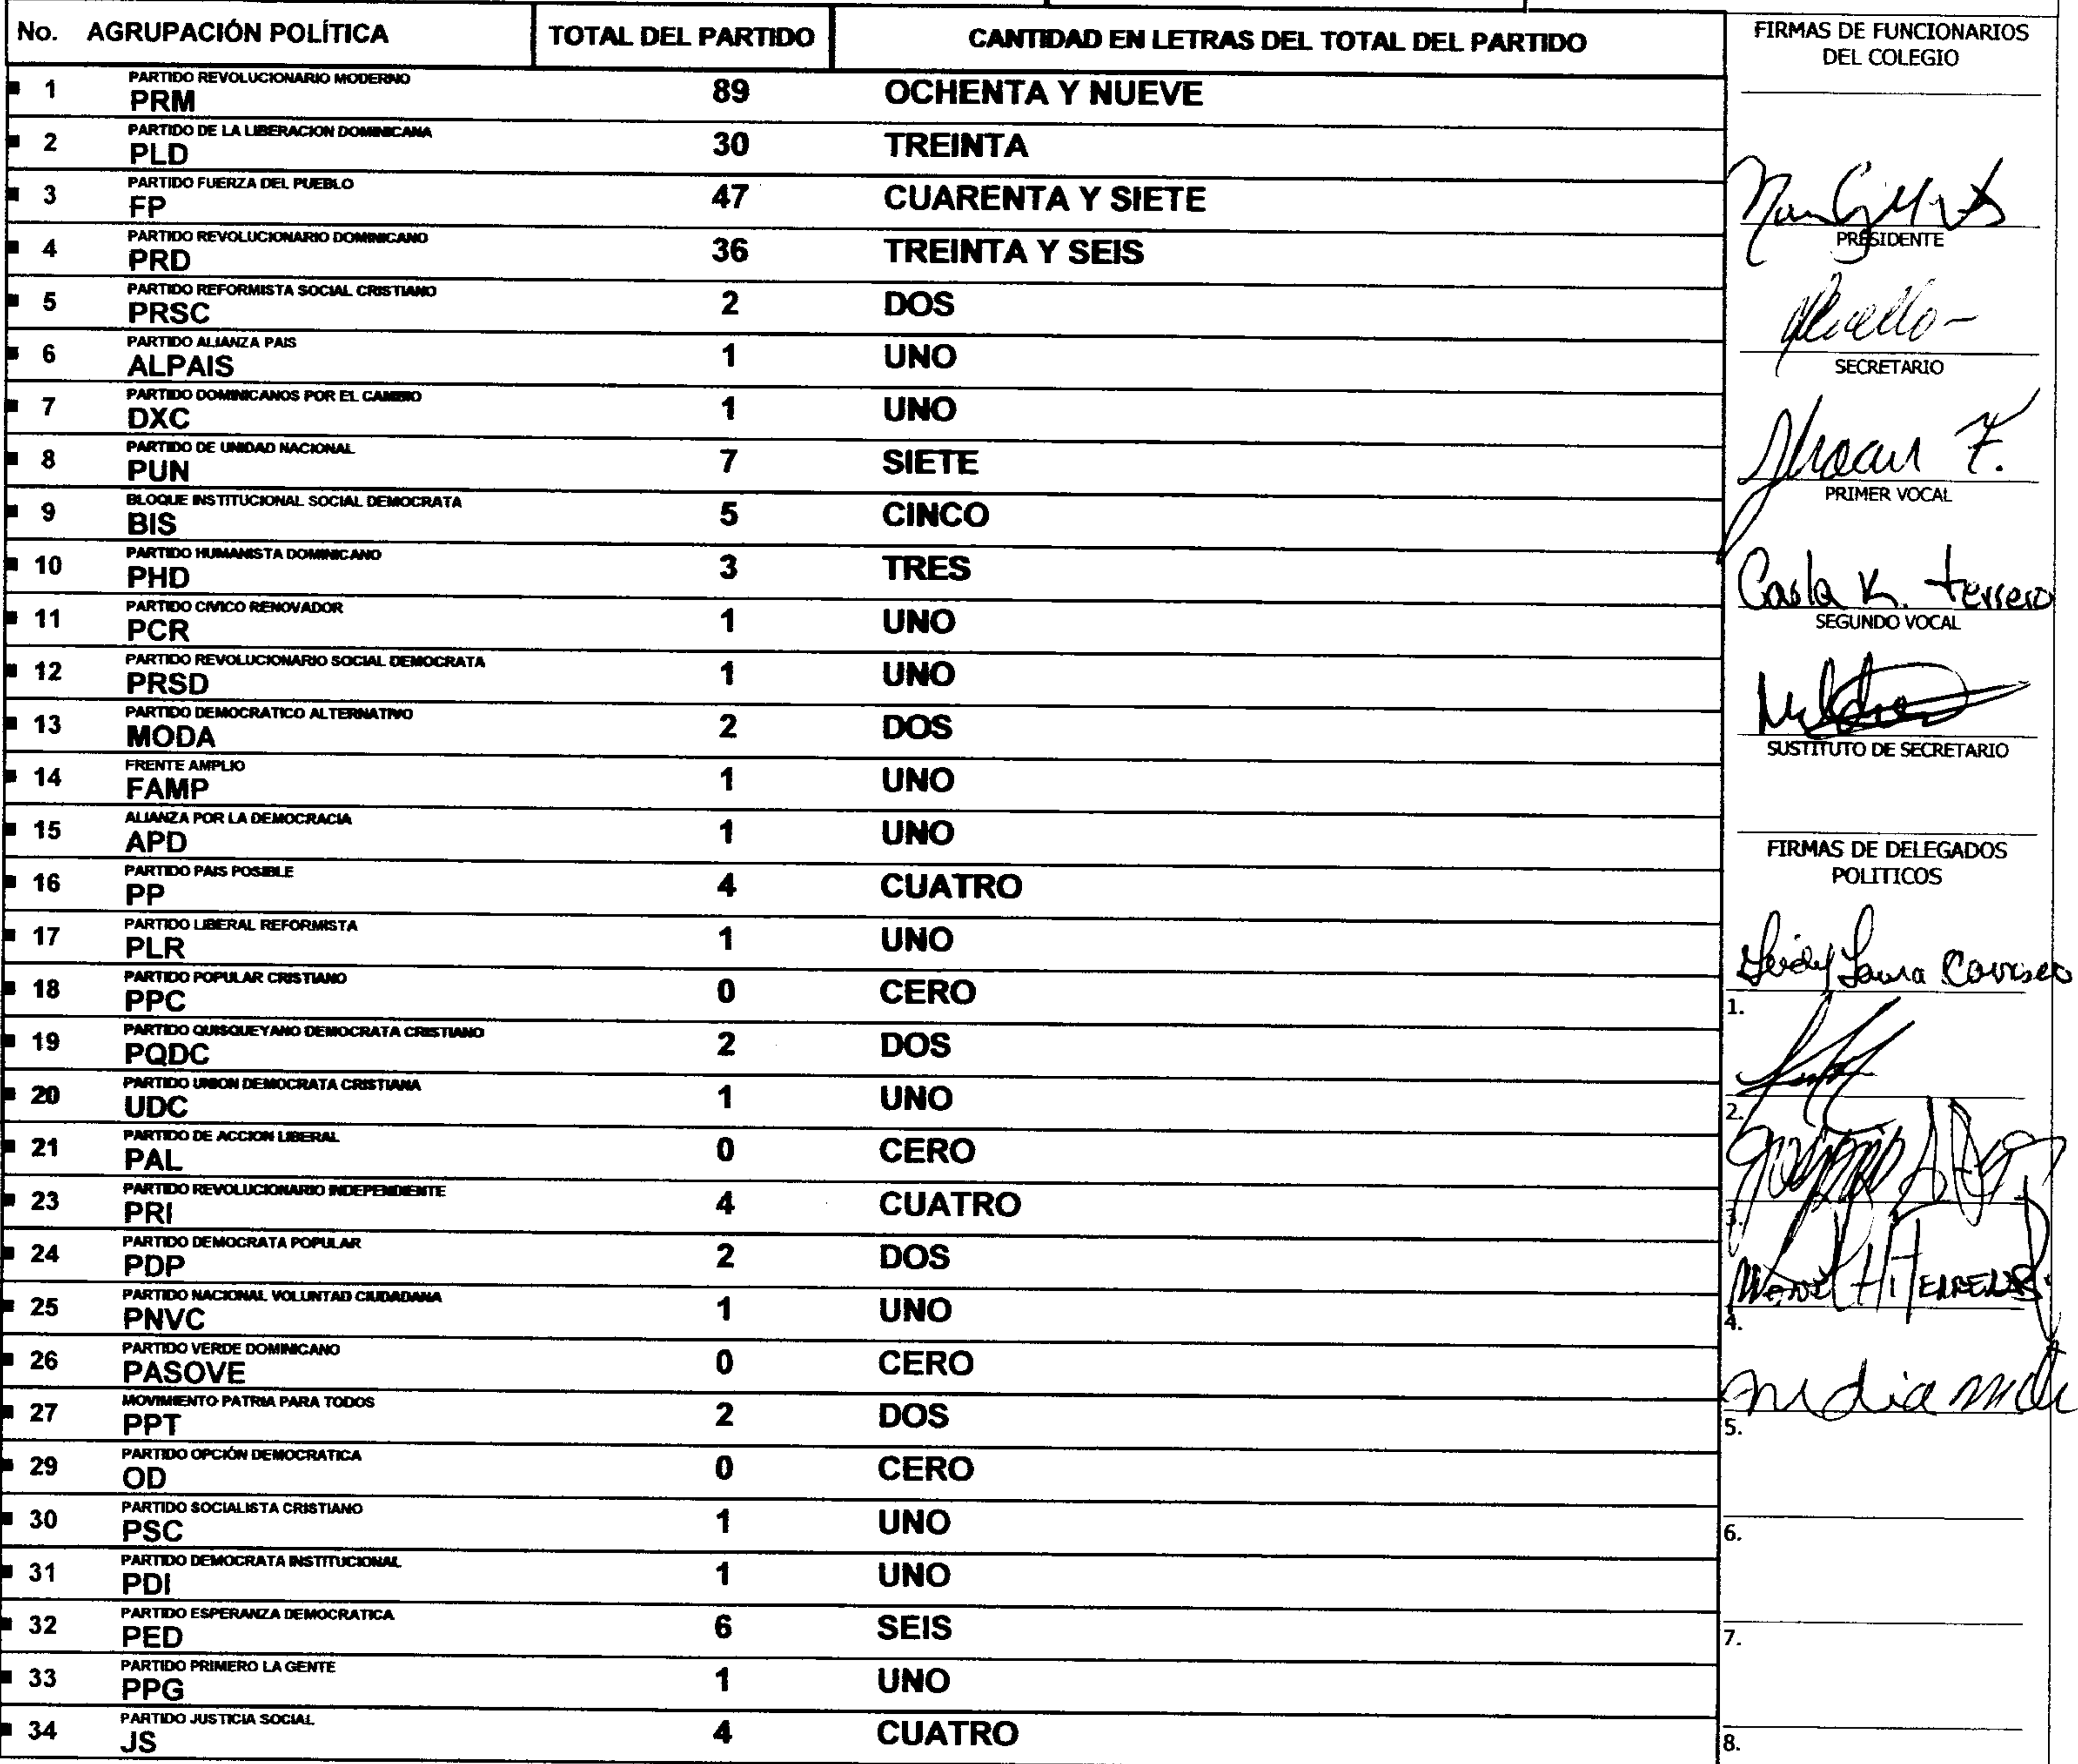 No. AGRUPACIÓN POLÍTICA TOTAL DEL PARTIDO CANTIDAD EN LETRAS DEL TOTAL DEL PARTIDO
PARTIDO REVOLUCIONARIO MODERNO
1 PRM 89 OCHENTA Y NUEVE
PARTIDO DE LA LIBERACION DOMINICANA
2 PLD 30 TREINTA
PARTIDO FUERZA DEL PUEBLO
3 FP 47 CUARENTA Y SIETE
PARTIDO REVOLUCIONARIO DOMINICANO
4 PRD 36 TREINTA Y SEIS
PARTIDO REFORMISTA SOCIAL CRISTIANO
5 PRSC 2 DOS
PARTIDO ALIANZA PAIS
6 ALPAIS 1 UNO
PARTIDO DOMINICANOS POR EL CAMBIO
7 DXC 1 UNO
PARTIDO DE UNIDAD NACIONAL
8 PUN 7 SIETE
BLOQUE INSTITUCIONAL SOCIAL DEMOCRATA
9 BIS 5 CINCO
PARTIDO HUMANISTA DOMINICANO
10 PHD 3 TRES
PARTIDO CIVICO RENOVADOR
11 PCR 1 UNO
PARTIDO REVOLUCIONARIO SOCIAL DEMOCRATA
12 PRSD 1 UNO
PARTIDO DEMOCRATICO ALTERNATIVO
13 MODA 2 DOS
FRENTE AMPLIO
14 FAMP 1 UNO
ALIANZA POR LA DEMOCRACIA
15 APD 1 UNO
PARTIDO PAIS POSIBLE
16 PP 4 CUATRO
PARTIDO LIBERAL REFORMISTA
17 PLR 1 UNO
PARTIDO POPULAR CRISTIANO
18 PPC 0 CERO
PARTIDO QUISQUEYANO DEMOCRATA CRISTIANO
19 PQDC 2 DOS
PARTIDO UNION DEMOCRATA CRISTIANA
20 UDC 1 UNO
PARTIDO DE ACCION LIBERAL
21 PAL 0 CERO
PARTIDO REVOLUCIONARIO INDEPENDIENTE
23 PRI 4 CUATRO
PARTIDO DEMOCRATA POPULAR
24 PDP 2 DOS
PARTIDO NACIONAL VOLUNTAD CIUDADANA
25 PNVC 1 UNO
PARTIDO VERDE DOMINICANO
26 PASOVE 0 CERO
MOVIMIENTO PATRIA PARA TODOS
27 PPT 2 DOS
PARTIDO OPCIÓN DEMOCRATICA
29 OD 0 CERO
PARTIDO SOCIALISTA CRISTIANO
30 PSC 1 UNO
PARTIDO DEMOCRATA INSTITUCIONAL
31 PDI 1 UNO
PARTIDO ESPERANZA DEMOCRATICA
32 PED 6 SEIS
PARTIDO PRIMERO LA GENTE
33 PPG 1 UNO
PARTIDO JUSTICIA SOCIAL
34 JS 4 CUATRO
FIRMAS DE FUNCIONARIOS
DEL COLEGIO
PRESIDENTE
SECRETARIO
F.
PRIMER VOCAL
Carla K. terrero
SEGUNDO VOCAL
SUSTITUTO DE SECRETARIO
FIRMAS DE DELEGADOS
POLITICOS
Laura
1.
2.
3.
4.
5.
6.
7.
8.